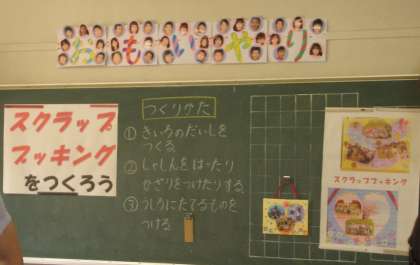 おもいやり
スクラップ
ブッキング
をつくろう
つくりかた
① きいろのだいしを
つくる
② しゃしんをはったり
かざりをつけたりする
③ うしろにたてるものを
つける
スクラップブッキング